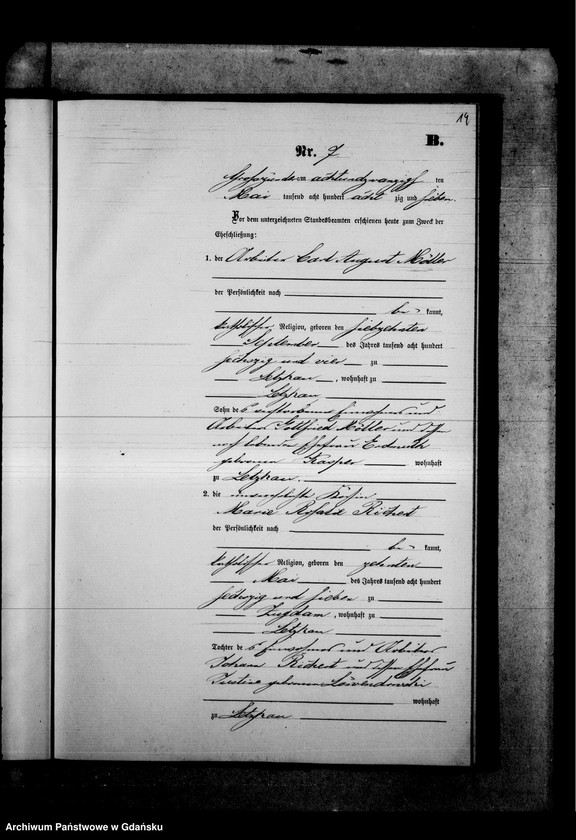 19
B.
Nr. 7
am achtundzwanzigsten
Mai tausend acht hundert acht zig und sieben.
Vor dem unterzeichneten Standesbeamten erschienen heute zum Zweck der
Eheschließung:
1. der Arbeiter Carl August Möller
der Persönlichkeit nach
be kannt,
katholischer Religion, geboren den siebzehnten
September des Jahres tausend acht hundert
sechszig und vier zu
Letzkau, wohnhaft zu
Letzkau
Sohn des verstorbenen Einwohners und
Arbeiters Gottfried Möller und dessen
noch lebenden Ehefrau
geborenen Kasper wohnhaft
zu Letzkau.
2. die unverehelichte
Marie Richert
der Persönlichkeit nach
be kannt,
katholischer Religion, geboren den zehnten
Mai des Jahres tausend acht hundert
sechszig und sieben zu
Zugdam, wohnhaft zu
Letzkau
Tochter des Einwohners und Arbeiters
Johann Richert und dessen Ehefrau
Justine geborenen
wohnhaft
zu Letzkau
Archiwum Państwowe w Gdańsku